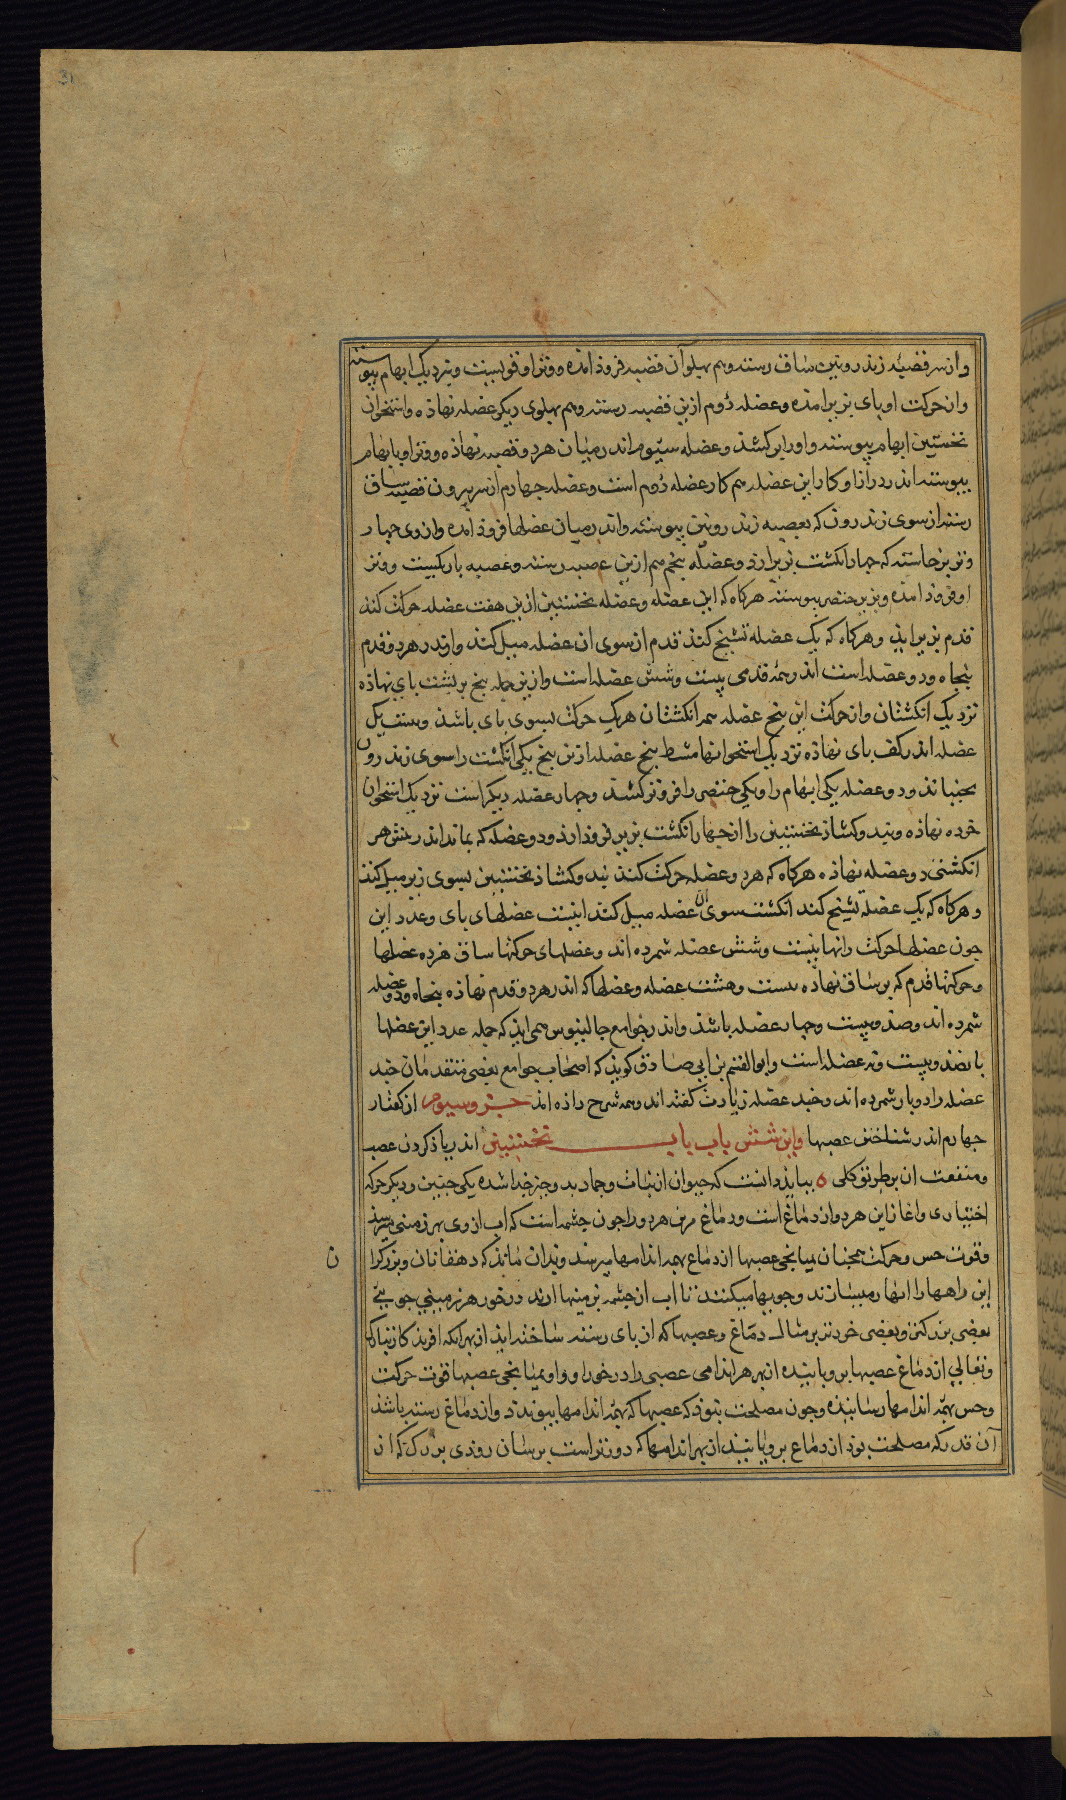 31
و از سر قصبهٔ زند روبین ساق رسته و هم بهلو آن قصبه فروذ امده و وتر او قویست و بنزدیک ابهام پیوسته
و ان حرکت او بای بزبر امده و عضله دوم ازین قصبه رسته و هم بهلوی دیگر عضله نهاده و استخوان
نخستین ابهام پیوسته و او را بر کشد و عضله سیوم اندر میان هر دو قصبه نهاذه و وتر او با بهام
پیوسته اندر درازا و کار این عضله هم کار عضله دوم است و عضله جهارم از سر بیرون قصبه ساق
رسته از سوی زند رون که بقصبه زند روبین پیوسته و اندر میان عضلها فروذ امده و از وی جهار
وتر برخاسته که جهار انکشت بزبر ارد و عضله بنجم هم ازین عصبه رسته و عصبه باریکست و وتر
او فروذ امده و بزبر خنصر پیوسته هرکاه که این عضله و عضله نخستین ازین هفت عضله حرکت کند
قدم بزبر ایذ و هرکاه که یک عضله تشنج کند قدم از سوی ان عضله میل کند و اندر هر دو قدم
بنجاه و دو عضله است اندر هر قدمی بیست و شش عضله است و ازین جمله بنج بر بشت بای نهاذه
نزدیک انکشتان و از حرکت این بنج عضله همه انکشتان هر یک حرکت بسوی بای باشذ و بیست یک
عضله اندر کف بای نهاذه نزدیک استخوانها مشط بنج عضله ازین بنج یکی انکشت را سوی زند رون
بجنباند و دو عضله یکی ابهام را و یکی خنصر را فروتر کشد و جهار عضله دیکر است نزدیک استخوان
خرده نهاذه و بند و کشاذ نخستین را از جهار انکشت بزبر فروذ ارذ و دو عضله که بماند اندر بخش هر
انکشتی دو عضله نهاذه هرکاه که هر دو عضله حرکت کنند بند و کشاذ نخستین بسوی زیر میل کند
و هرکاه که یک عضله تشنج کند انکشت سوی ان عضله میل کند اینست عضلهای بای و عدد این
جون عضلها حرکت رانها بیست و شش عضله شمرده اند و عضلهای حرکتها ساق هژده عضلها
و حرکتها قدم که بر ساق نهاذه بیست و هشت عضله و عضلها که اندر هر دو قدم نهاذه بنجاه و دو عضله
شمرده اند و صذ و بیست و جهار عضله باشذ و اندر جوامع جالینوس همی ایذ که جمله عدد این عضلها
بانصد و بیست و نه عضله است و ابو الفتح بن ابی صادق کویذ که اصحاب جوامع بعضی متقدمان جند
عضله را دو بار شمرده اند و جند عضله زیادت کفته اند و همه شرح داذه امذ جزو سیوم از کفتار
جهارم اندر شناختن عصبها و این شش باب باب نخستین اندر یاذ کردن عصب
و منفعت ان بر طریق کلی ه ببایذ دانست که حیوان از نبات و جماد بدو جیز جذا شده یکی جنبین و دیکر حرکه
اختیاری و اغاز این هر دو از دماغ است و دماغ مرین هر دو را جون جشمه است که اب از وی بهر زمینی میرسذ
و قوت حس و حرکت همجنان بمیانجی عصبها از دماغ بهمه اندامها میرسد و بدان ماند که دهقانان و بزرکران
این راهها را انهار میسازند و جویها میکنند تا اب ان جشمه بزمینها ارند و درخور هر زمینی جویی
بعضی بزرکتر و بعضی خردتر بر مثال دماغ و عصبها که از بای رسته ساخته ایذ از بهر انکه افریذکار تبارک
و تعالی از دماغ عصبها برویانیده از بهر هر اندامی عصبی را درخور او و او بمیانجی عصبها قوت حرکت
و حس بهمه اندامها رسانیذه و جون مصلحت نبوذ که عصبها که بهمه اندامها پیوندند و از دماغ رسته باشذ
آن قدر که مصلحت بوذ از دماغ برویانیذ از بهر اندامها که دورتر است برسان روذی بزرک که از
ن